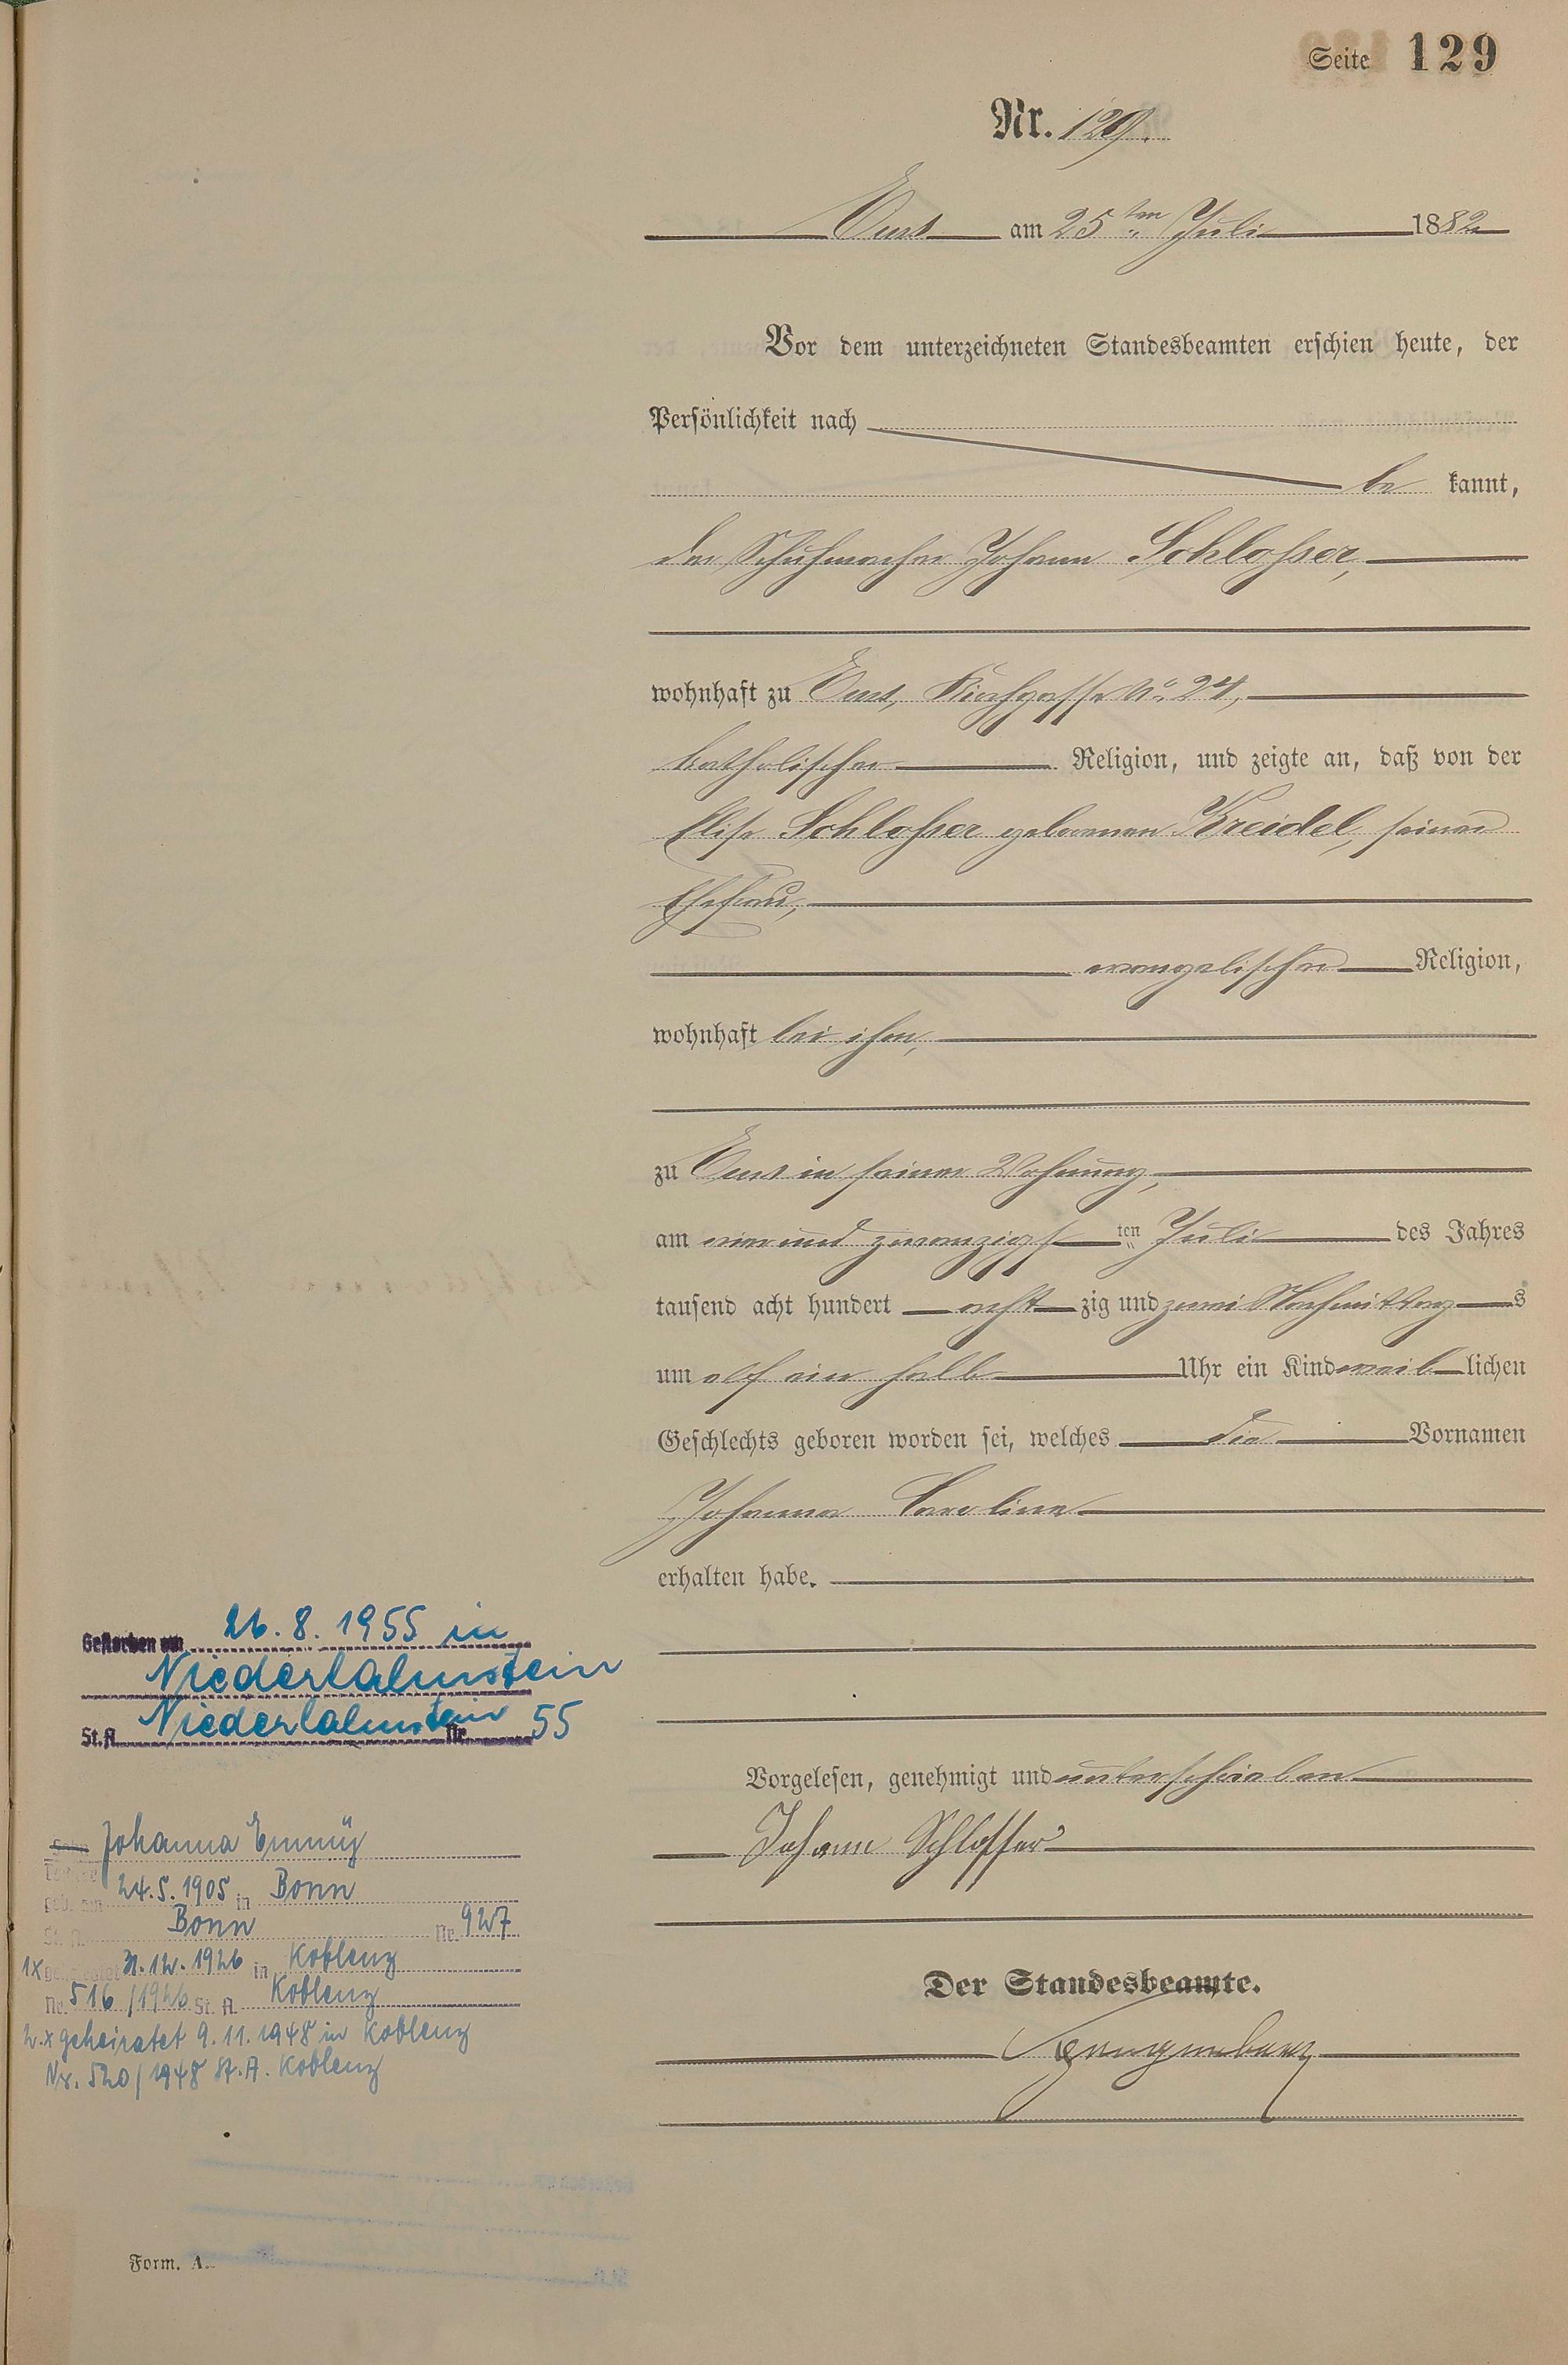 Seite 129
Nr. 129.
Ems am 25ten Juli 1882
Vor dem unterzeichneten Standesbeamten erschien heute, der
Persönlichkeit nach
be kannt,
der Schuhmacher Johann Schlosser,
wohnhaft zu Ems, Kirchgasse No. 24,
katholischer Religion, und zeigte an, daß von der
Elise Schlosser geborenen Kreidel, seiner
Ehefrau,
evangelischer Religion,
wohnhaft bei ihm,
zu Ems in seiner Wohnung,
am ein und zwanzigsten Juli des Jahres
tausend acht hundert acht zig und zwei Nachmittags
um elf ein halb Uhr ein Kind weiblichen
Geschlechts geboren worden sei, welches die Vornamen
Johanna Carolina
erhalten habe.
Vorgelesen, genehmigt und unterschrieben
Johann Schlosser
Der Standesbeamte.
Gestorben am 26.8.1955 in
Niederlahnstein
St.A. Niederlahnstein Nr. 55
Johanna Emmy
geb. am 24.5.1905 in Bonn
St. A. Bonn Nr. 927
1x geheiratet 31.12.1926 in Koblenz
Nr. 516/1926 St. A. Koblenz
2.x geheiratet 9.11.1948 in Koblenz
Nr. 520/1948 St.A. Koblenz
Form. A.